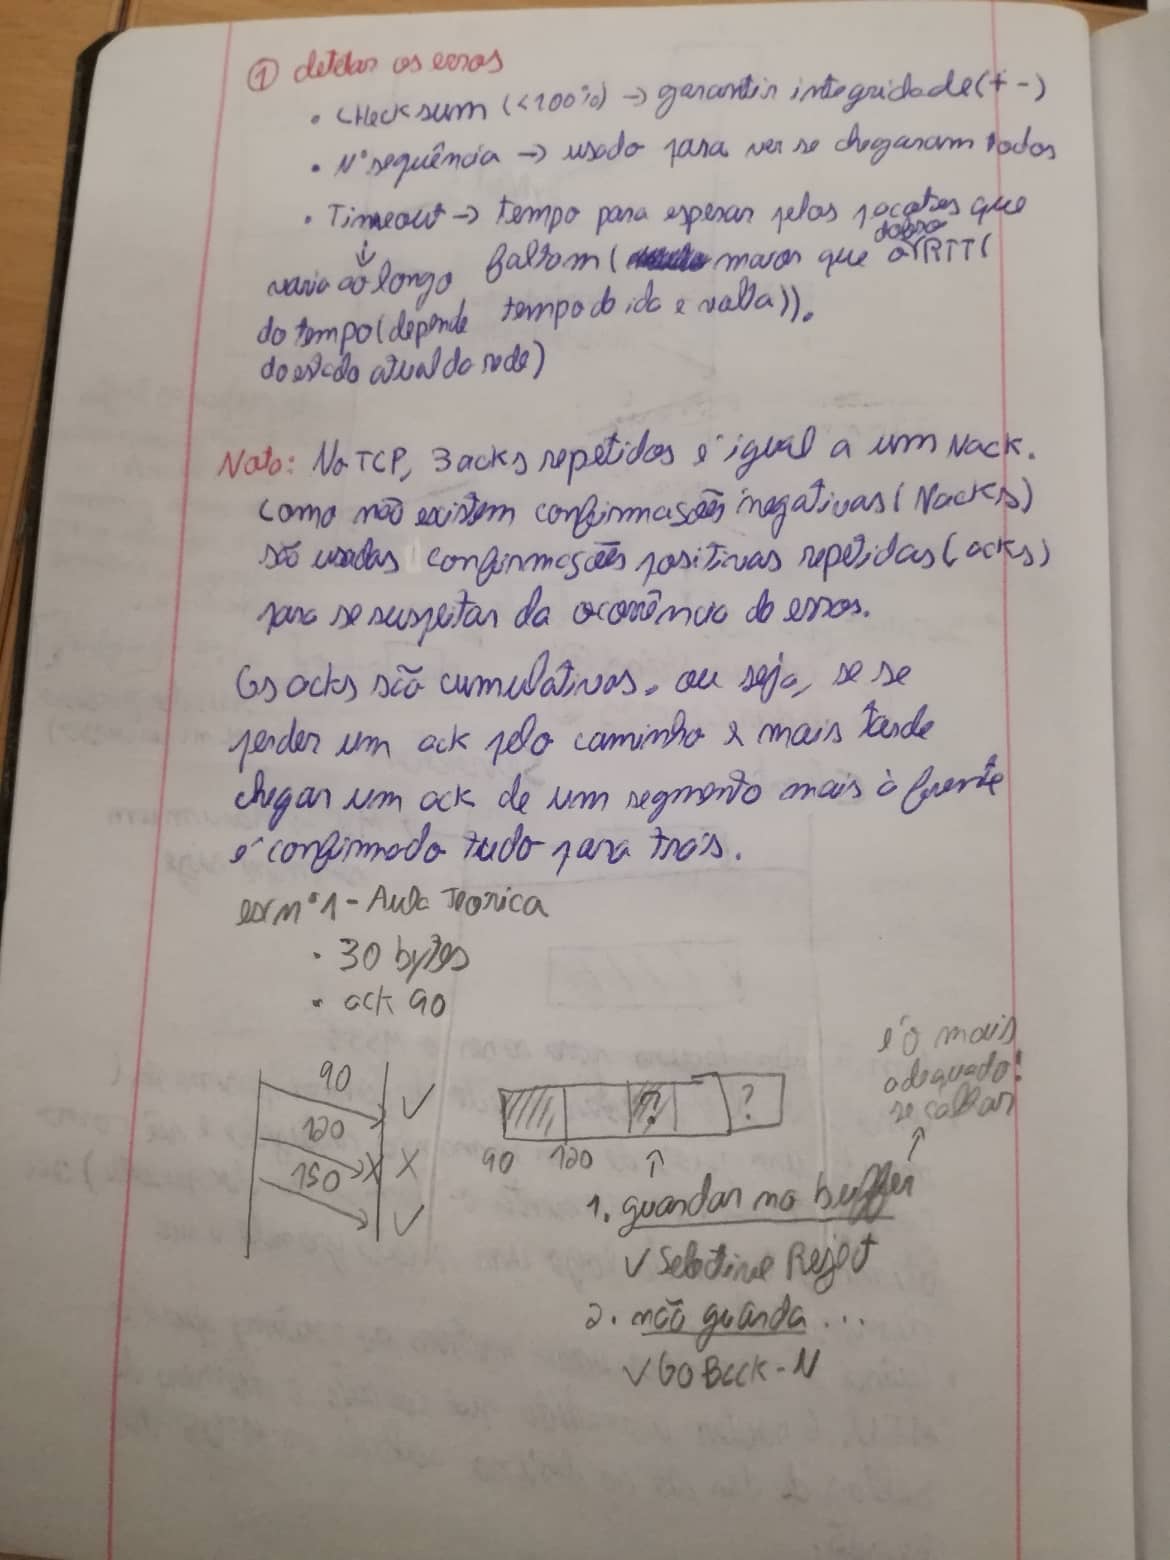 ① detetar os erros
• checksum (<100%) → garantir integridade (+ -)
• Nº sequência → usado para ver se chegaram todos
• Timeout → tempo para esperar pelos pacotes que
faltam ( maior que o dobro RTT (
tempo de ida e volta)).
↓
varia ao longo
do tempo (depende
do estado atual da rede)
Nota: No TCP, 3 acks repetidos é igual a um Nack.
Como não existem confirmações negativas (Nacks)
são usadas confirmações positivas repetidas (acks)
para se suspeitar da ocorrência de erros.
Os acks são cumulativos, ou seja, se se
perder um ack pelo caminho e mais tarde
chegar um ack de um segmento mais à frente
é confirmado tudo para trás.
ex nº1 - Aula Teorica
• 30 bytes
• ack 90
90 ✓
120 X X
150 ✓
? ?
90 120 ↑
é o mais
adequado!
se calhar
↑
1. guardar no buffer
✓ Selective Reject
2. não guarda ...
✓ Go Back-N